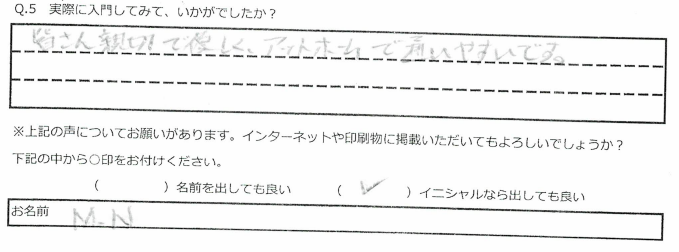 Q.5 実際に入門してみて、いかがでしたか？
皆さん親切で優しく、アットホームで通いやすいです。
※上記の声についてお願いがあります。インターネットや印刷物に掲載いただいてもよろしいでしょうか？
下記の中から○印をお付けください。
（　　　　）名前を出しても良い　　（　✓　）イニシャルなら出しても良い
お名前　M-N